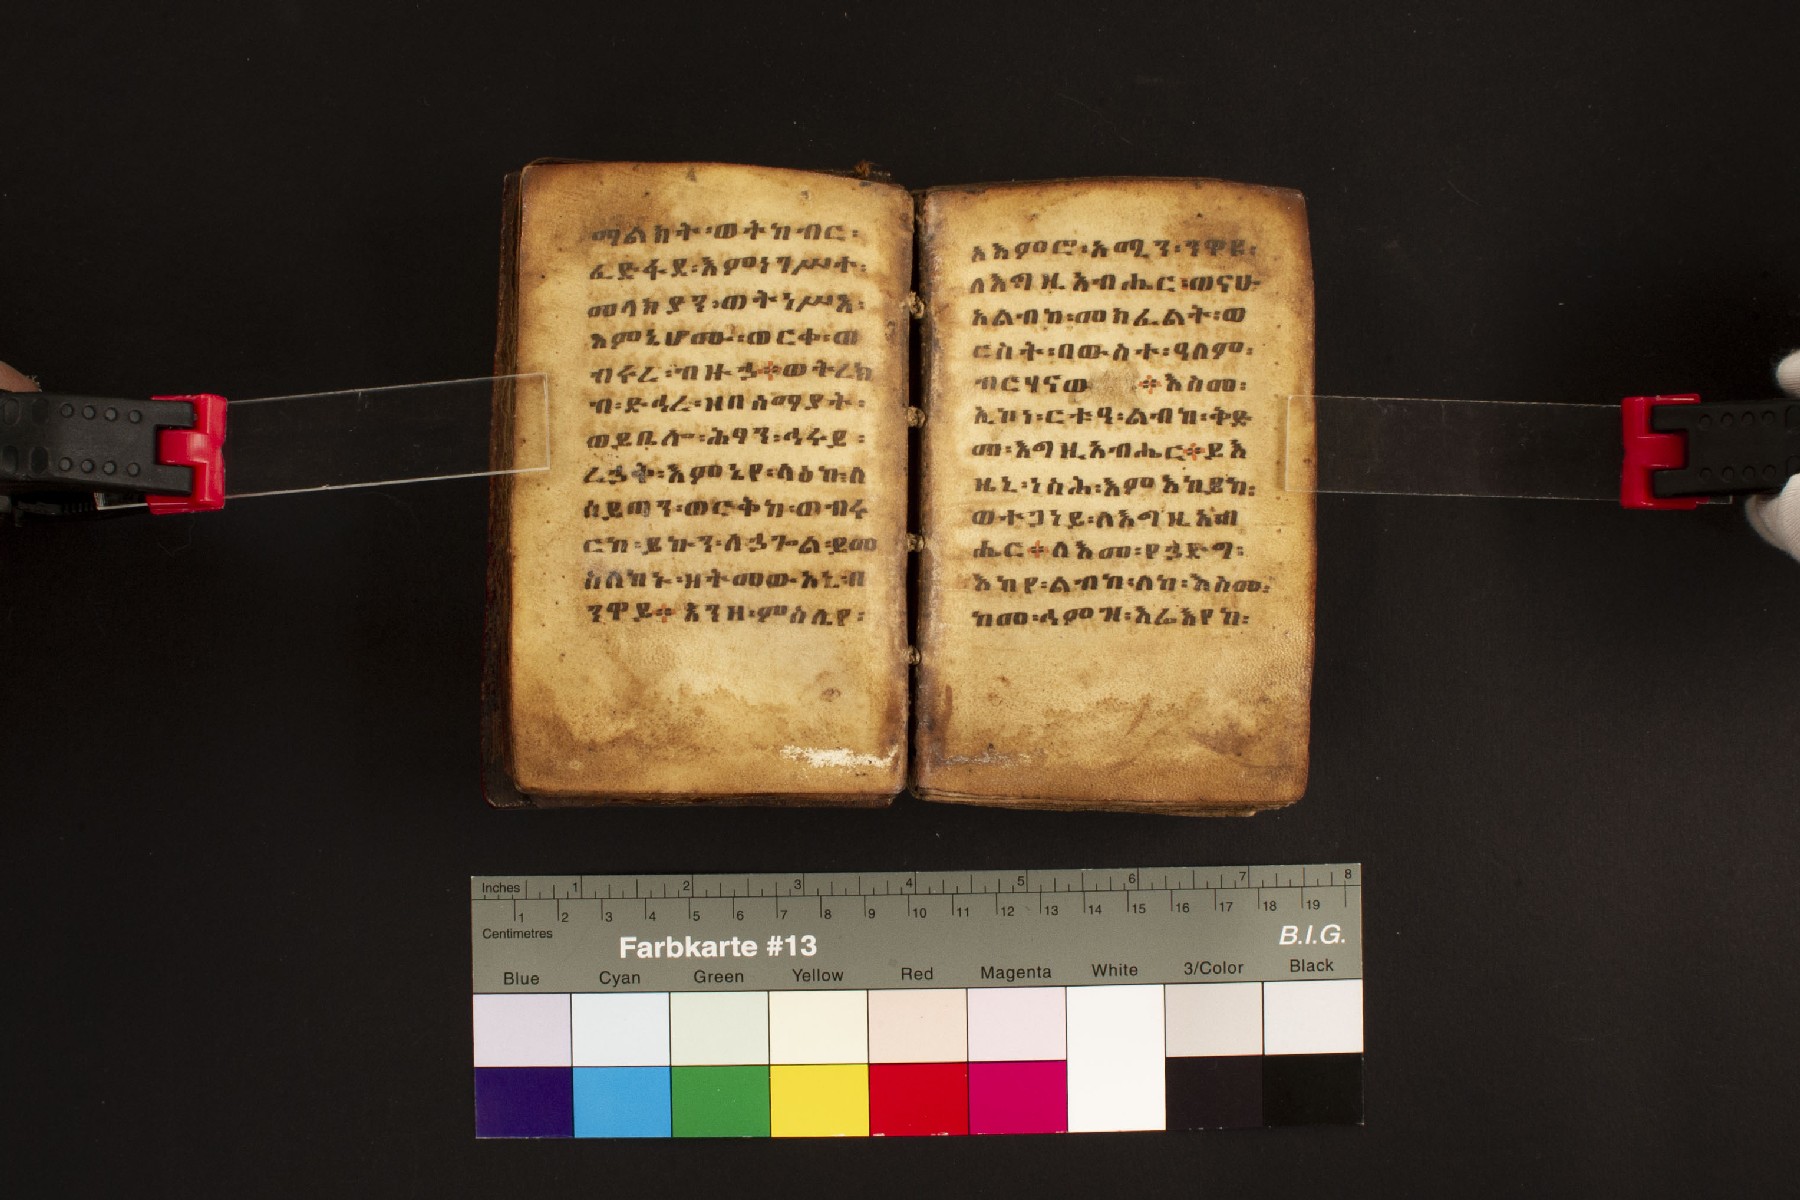 ማልክት፡ወትከብር፡
ፈድፋደ፡እምነገሥተ፡
መላክያን፡ወትነሥእ፡
እምኔሆሙ፡ወርቀ፡ወ
ብሩረ፡ብዙኃ፨ወትረክ
ብ፡ድኅረ፡ዝበሰማያት፡
ወይቤሎ፡ሕፃን፡ኅሩይ፡
ረኃቀ፡እምኔየ፡ላዕኩ፡ሰ
ሰይጣን፡ወርቅከ፡ወብሩ
ርከ፡ይኩን፡ለኃጕል፡ይመ
ስለከኑ፡ዘትመውአኒ፡በ
ንዋይ፨እንዘ፡ምስሌየ፡
አእምሮ፡አሚን፡ንዋዩ፡
ለእግዚአብሔር፡ወናሁ
አልብከ፡መክፈልት፡ወ
ርስት፡በውስተ፡ዓለም፡
ብርሃናዊ ፨እስመ፡
ኢኮነ፡ርቱዓ፡ልብከ፡ቅድ
መ፡እግዚአብሔር፨ይእ
ዜኒ፡ነስሕ፡እምእከይከ፡
ወተጋነይ፡ለእግዚአብ
ሔር፨ለእመ፡የኃድግ፡
እከየ፡ልብከ፡ለከ፡እስመ፡
ከመ፡ሐምዝ፡እሬእየከ፡
Inches 1 2 3 4 5 6 7 8
1 2 3 4 5 6 7 8 9 10 11 12 13 14 15 16 17 18 19
Centimetres
Farbkarte #13
B.I.G.
Blue Cyan Green Yellow Red Magenta White 3/Color Black